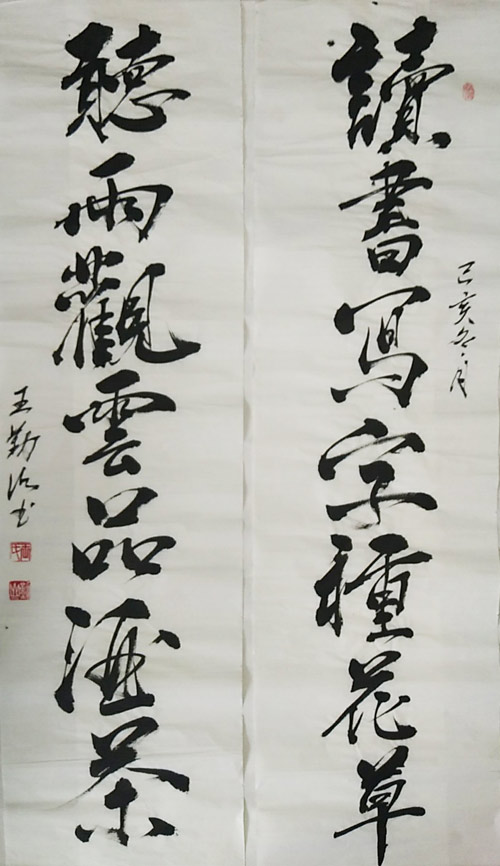 己亥冬月
讀書寫字種花草
聽雨觀雲品酒茶
王勤